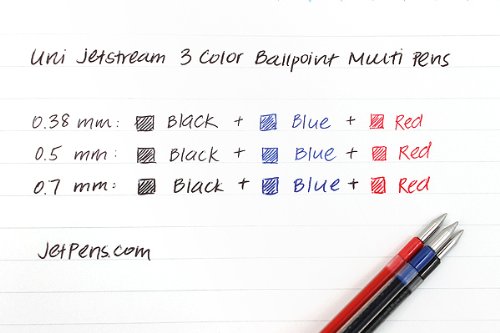 Uni Jetstream 3 Color Ballpoint Multi Pens
0.38 mm: Black + Blue + Red
0.5 mm: Black + Blue + Red
0.7 mm: Black + Blue + Red
JetPens.com